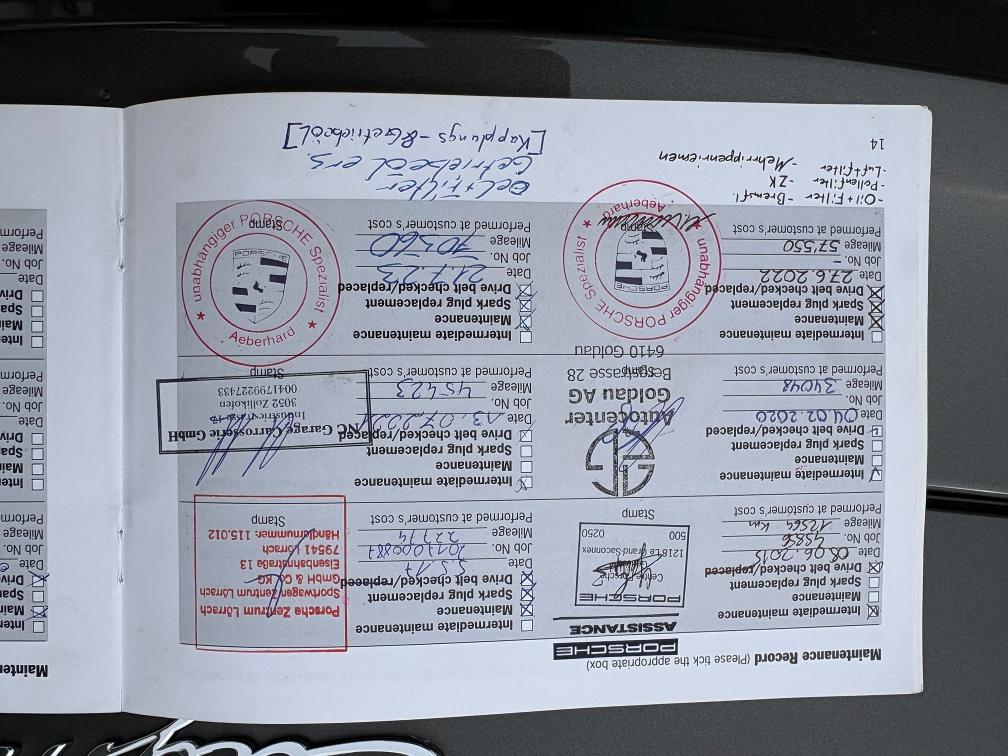 Maintenance Record (Please tick the appropriate box)
PORSCHE
ASSISTANCE
Intermediate maintenance
Maintenance
Spark plug replacement
Drive belt checked/replaced
Date 08.06.2015
Job No. 4588
Mileage 12564 Km
Performed at customer's cost
PORSCHE
Centre Porsche
1218 Le Grand-Saconnex
500 0250
Stamp
Intermediate maintenance
Maintenance
Spark plug replacement
Drive belt checked/replaced
Date 5.5.17
Job No.
Mileage 22774
Performed at customer's cost
Porsche Zentrum Lörrach
Sportwagen Zentrum Lörrach
GmbH & Co.KG
Eisenbahnstraße 13
79541 Lörrach
Händlernummer: 115.012
Stamp
Intermediate maintenance
Maintenance
Spark plug replacement
Drive belt checked/replaced
Date 04.02.2020
Job No.
Mileage 34048
Performed at customer's cost
Autocenter
Goldau AG
Bergstrasse 28
6410 Goldau
Stamp
Intermediate maintenance
Maintenance
Spark plug replacement
Drive belt checked/replaced
Date 13.07.2021
Job No.
Mileage 45423
Performed at customer's cost
NC Garage Carrosserie GmbH
3052 Zollikofen
0041799227433
Stamp
Intermediate maintenance
Maintenance
Spark plug replacement
Drive belt checked/replaced
Date 27.6.2022
Job No. -
Mileage 57550
Performed at customer's cost
unabhängiger PORSCHE Spezialist
PORSCHE
Aeberhard
Stamp
Intermediate maintenance
Maintenance
Spark plug replacement
Drive belt checked/replaced
Date 21.7.23
Job No.
Mileage 70360
Performed at customer's cost
Aeberhard
PORSCHE
unabhängiger PORSCHE Spezialist
Stamp
-Oil+Filter -Bremsfl.
-Pollenfilter -ZK
-Luftfilter -Mehrrippenriemen
Oel+Filter
Getriebeöl ers.
[Kupplungs-&Getriebeöl]
14
Mainte
Inter
Main
Spa
Drive
Date
Job No.
Mileage
Perform
Inter
Main
Spa
Driv
Date
Job No.
Mileage
Perform
Inter
Main
Spa
Driv
Date
Job No.
Mileage
Perform